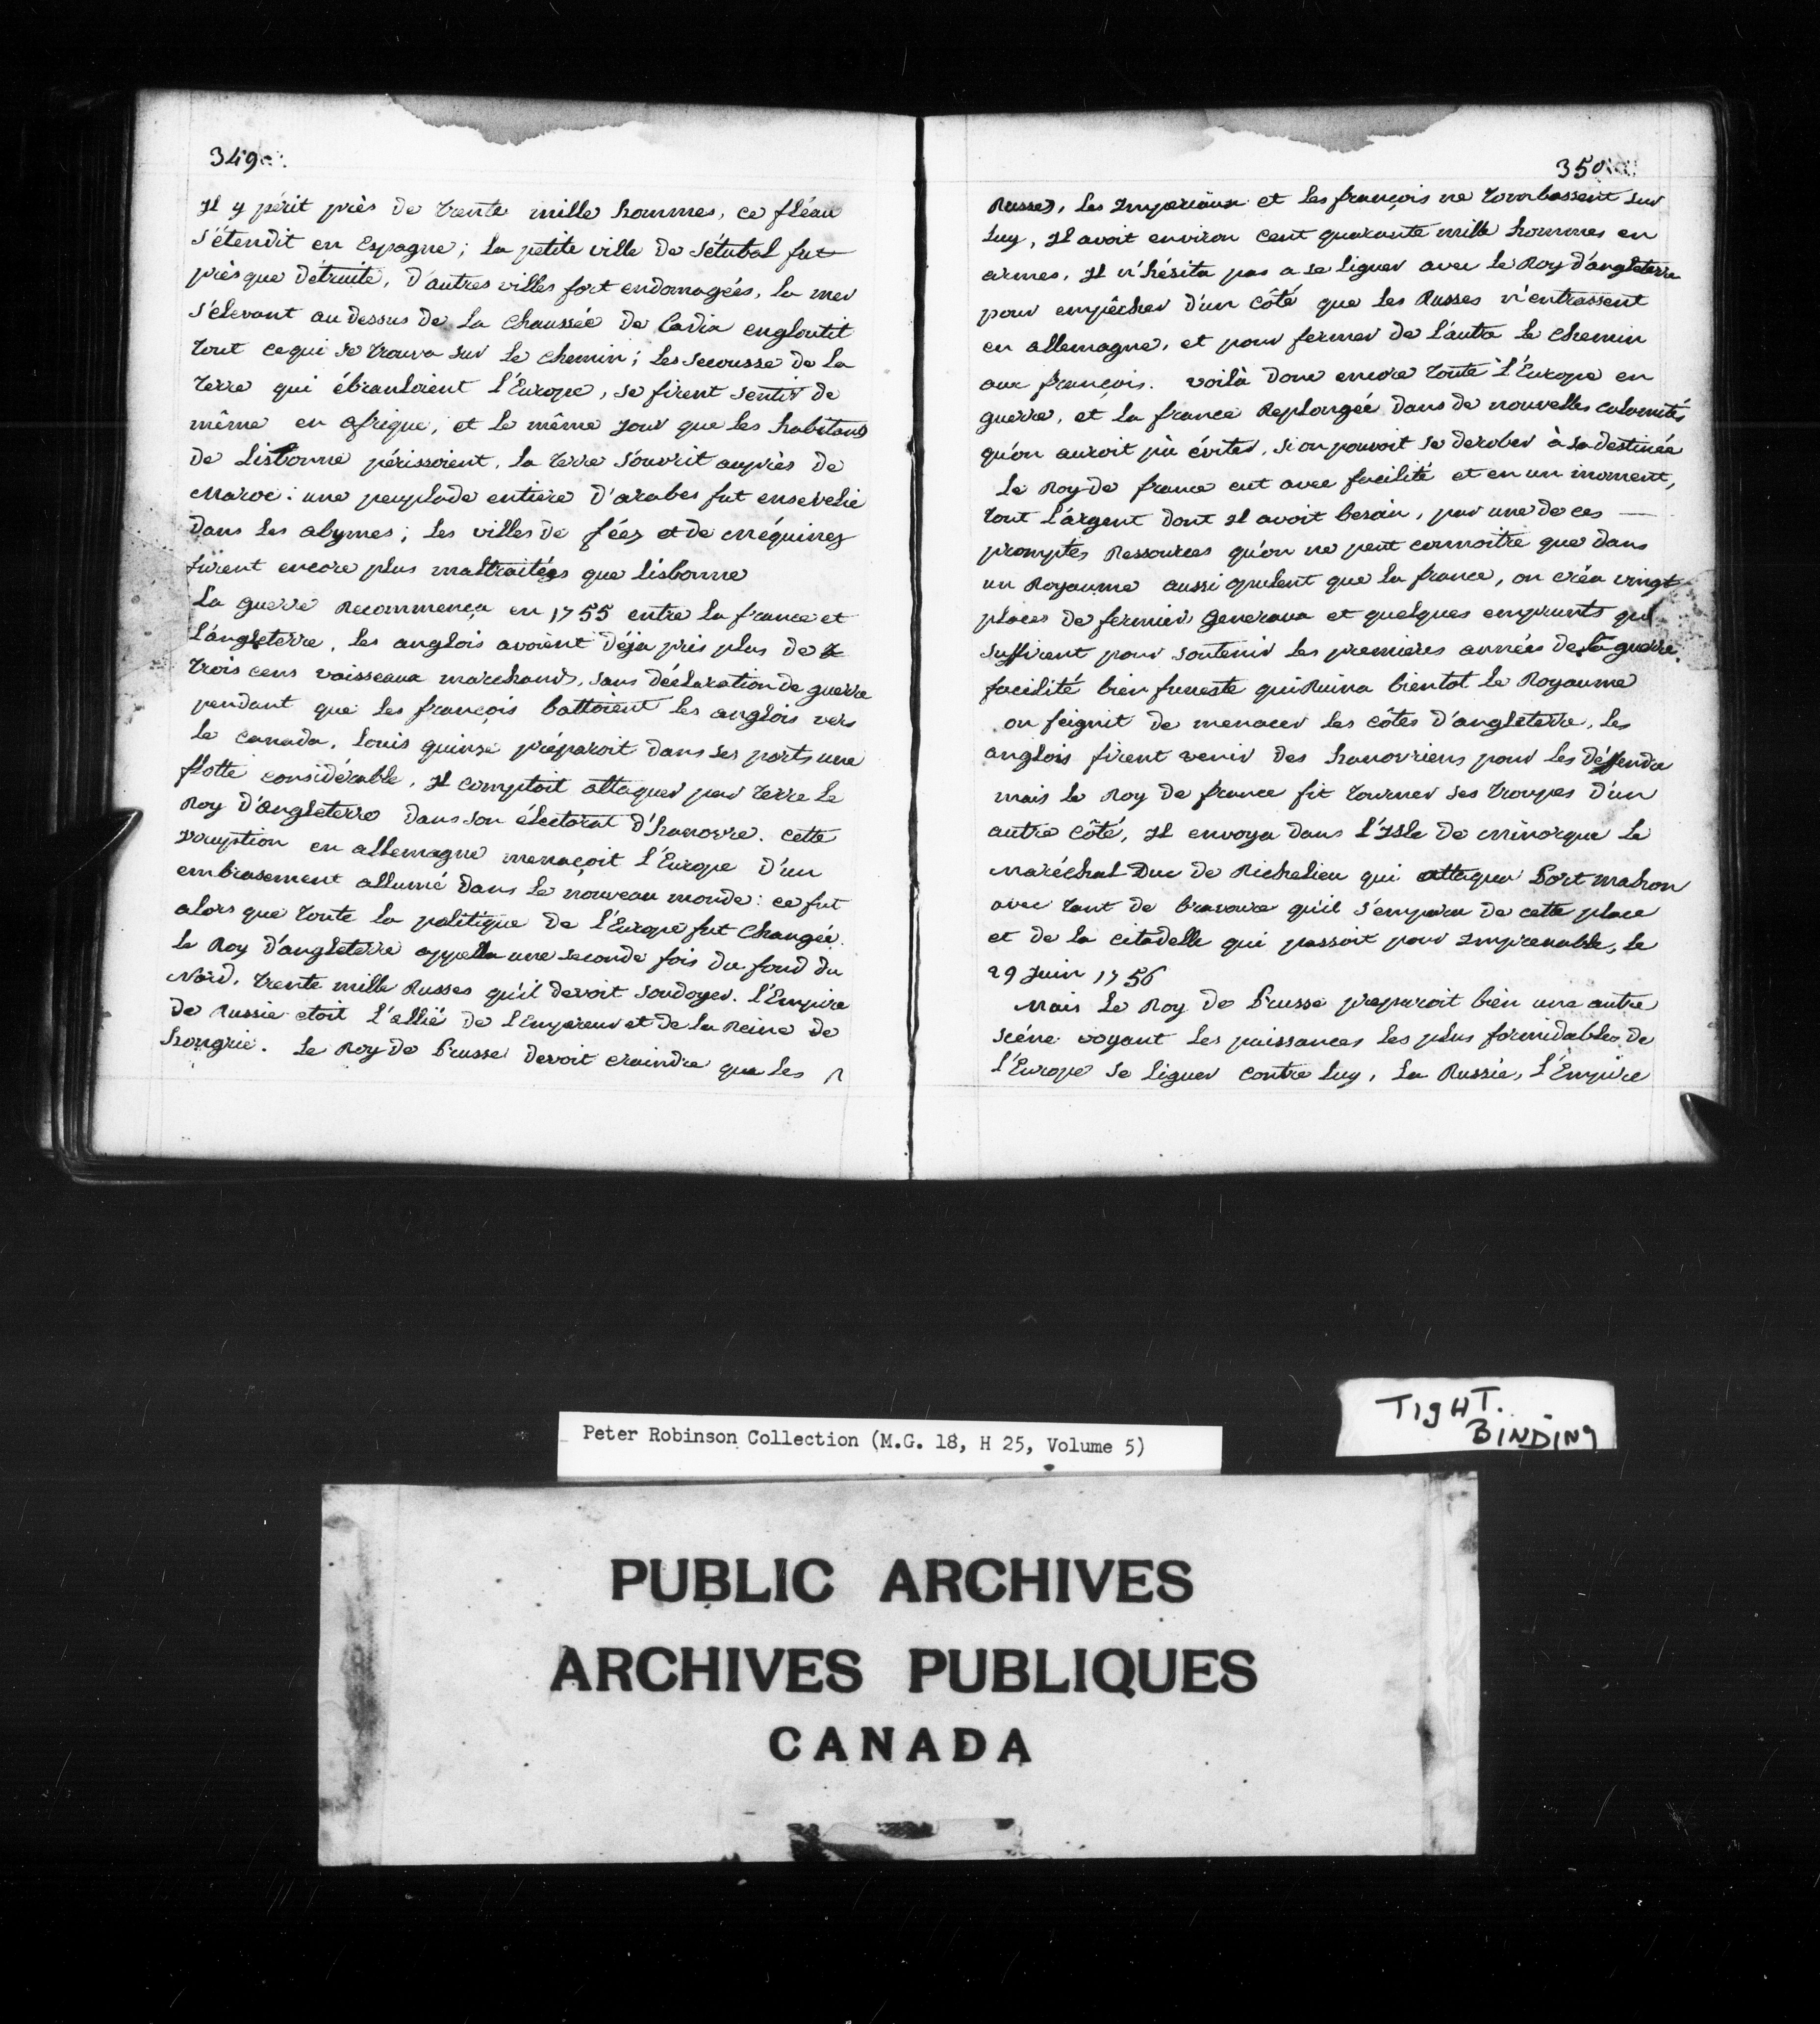 349
Il y périt près de trente mille hommes, ce fléau
s'étendit en Espagne; la petite ville de Sétubal fut
presque détruite, d'autres villes fort endomagées, la mer
s'élevant au dessus de la chaussée de Cadix engloutit
tout ce qui se trouva sur le chemin; les secousse de la
terre qui ébranloient l'Europe, se firent sentir de
même en afrique, et le même jour que les habitans
de Lisbonne périssoient, la terre s'ouvrit auprès de
Maroc: une peuplade entiere d'arabes fut ensevelie
dans les abymes; les villes de féez et de Méquinez
furent encore plus maltraitées que Lisbonne
La guerre Recommença en 1755 entre la france et
l'angleterre, les anglois avoient déja pris plus de
trois cens vaisseaux marchands, sans déclaration de guerre
pendant que les françois battoient les anglois vers
le Canada, Louis quinze préparoit dans ses ports une
flotte considérable, Il comptoit attaquer par terre le
Roy d'Angleterre dans son électorat d'hanovre. Cette
irruption en allemagne menaçoit l'Europe d'un
embrasement allumé dans le nouveau monde: ce fut
alors que toute la politique de l'Europe fut Changée.
le Roy d'angleterre appella une seconde fois du fond du
Nord, trente mille Russes qu'il devoit soudoyer. L'Empire
de Russie etoit l'allié de l'Empereur et de la Reine de
hongrie. Le Roy de Prusse devoit craindre que les R
350
Russes, les Imperiaux et les françois ne tombassent sur
luy, Il avoit environ cent quarante mille hommes en
armes, Il n'hésita pas a se liguer avec le Roy d'angleterre
pour empêcher d'un côté que les Russes n'entrassent
en allemagne, et pour fermer de l'autre le chemin
aux françois. voilà donc encore toute l'Europe en
guerre, et la france Replongée dans de nouvelles calamités
qu'on auroit pû éviter, si on pouvoit se derober à sa destinée
Le Roy de france eut avec facilité et en un moment,
tout l'argent dont Il avoit besoin, par une de ces —
promptes Ressources qu'on ne peut connoitre que dans
un Royaume aussi opulent que la france, on créa vingt
places de fermier Generaux et quelques emprunts qui
suffirent pour soutenir les premieres années de la guerre.
facilité bien funeste qui Ruina bientot le Royaume
on feignit de menacer les côtes d'angleterre, les
anglois firent venir des hanovriens pour les déffendre
mais le Roy de france fit tourner ses troupes d'un
autre côté, Il envoya dans l'Isle de Minorque le
Maréchal Duc de Richelieu qui attaqua Port mahon
avec tant de bravoure qu'il s'empara de cette place
et de la citadelle qui passoit pour Imprenable, le
29 Juin 1756
Mais le Roy de Prusse preparoit bien une autre
scéne voyant les puissances les plus formidables de
l'Europe se liguer contre luy, la Russie, l'Empire
TIGHT.
BINDING
Peter Robinson Collection (M.G. 18, H 25, Volume 5)
PUBLIC ARCHIVES
ARCHIVES PUBLIQUES
CANADA